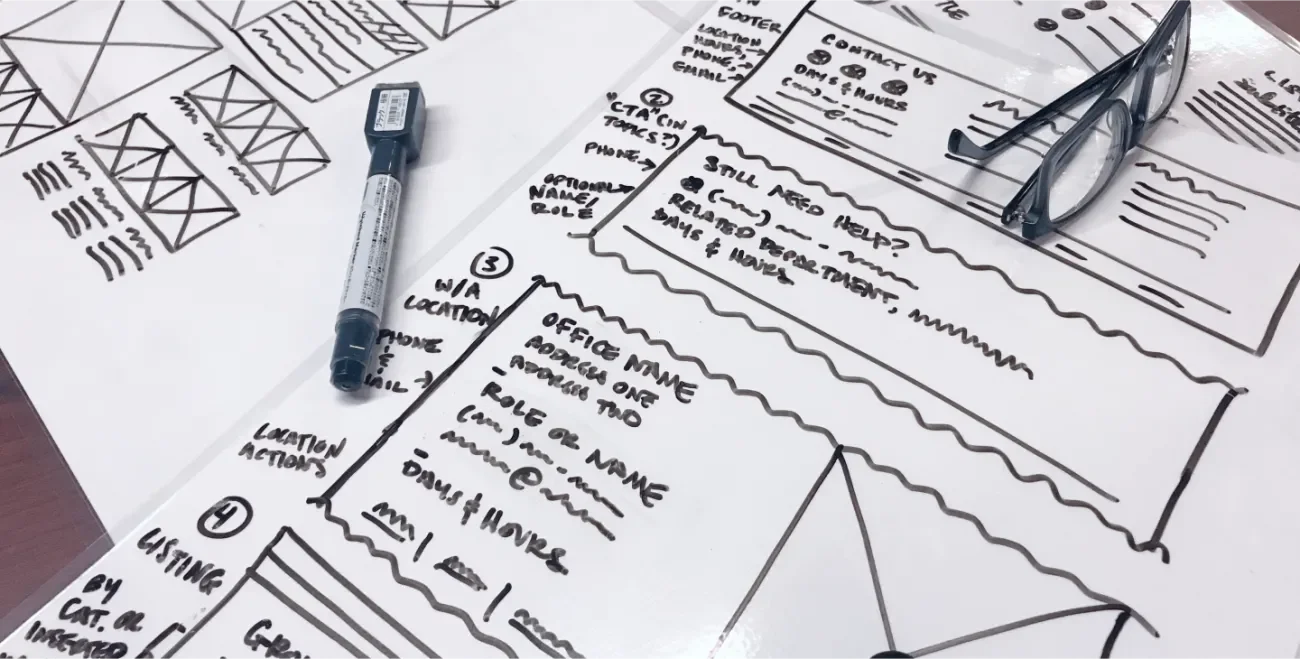 FOOTER
LOCATION
HOURS,
PHONE,
EMAIL
CONTACT US
DAYS & HOURS
2
CTA (IN
TOPICS?)
PHONE
OPTIONAL
NAME/
ROLE
STILL NEED HELP?
RELATED DEPARTMENT,
DAYS & HOURS
3
W/A
LOCATION
PHONE
&
LOCATION
ACTIONS
OFFICE NAME
ADDRESS ONE
ADDRESS TWO
ROLE OR NAME
@
DAYS & HOURS
4
LISTING
BY
CAT. OR